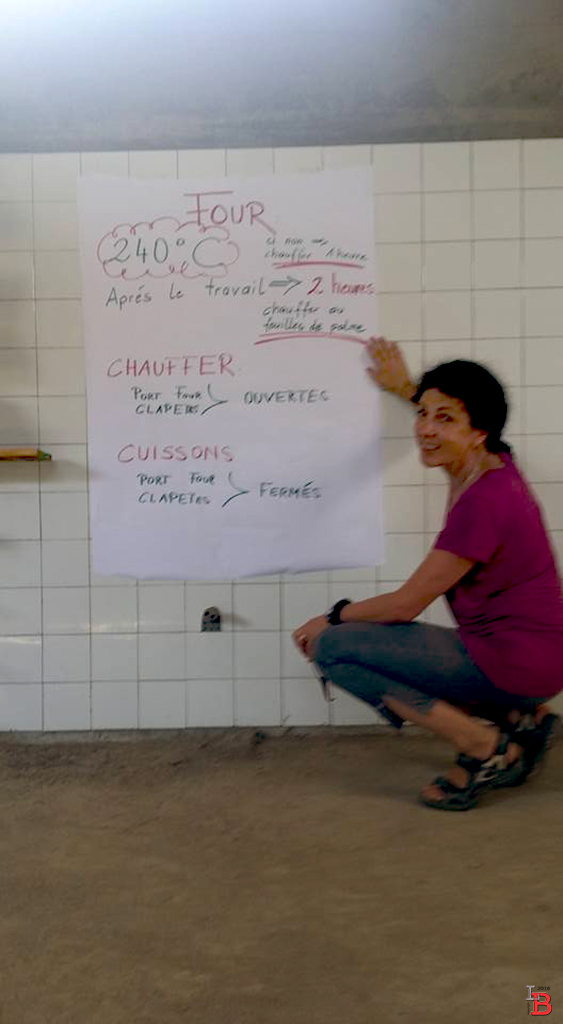 FOUR
240°C
si non →
chauffer 1 heure
Aprés le travail ⇒ 2 heures
chauffer au
feuilles de palme
CHAUFFER
PORT FOUR
CLAPETES
OUVERTES
CUISSONS
PORT FOUR
CLAPETES
FERMÉS
2016
IB